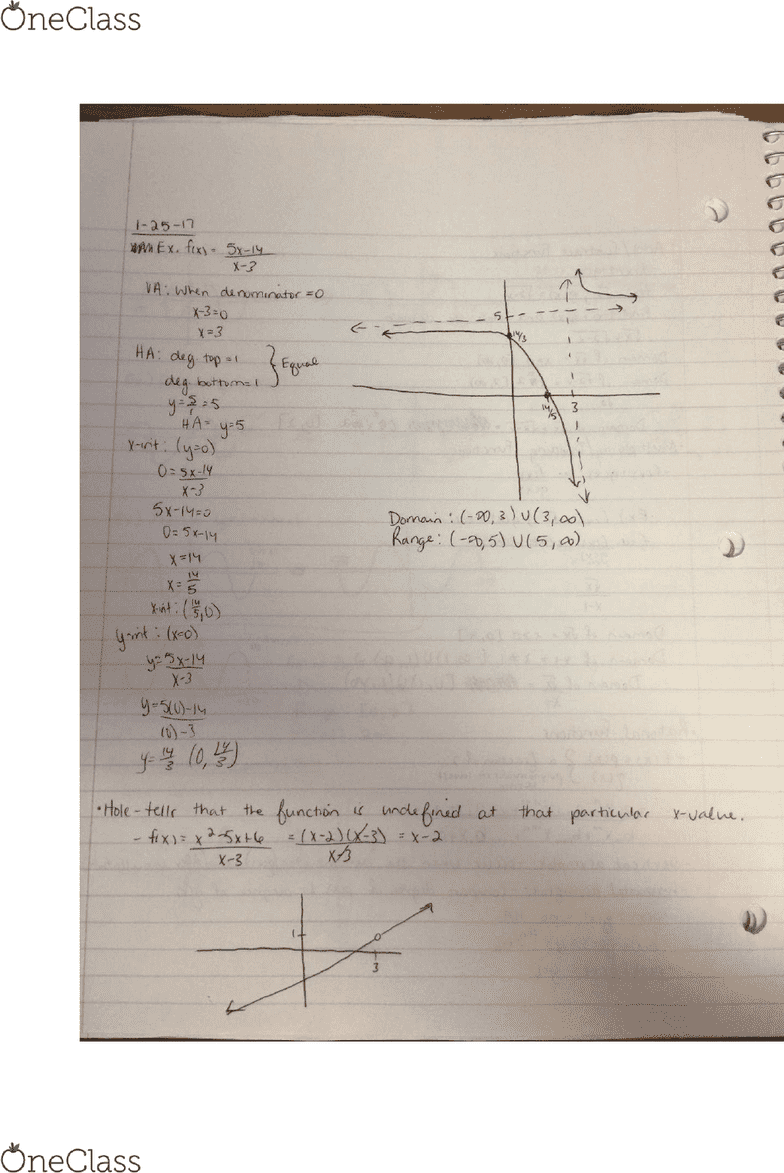 OneClass
1-25-17
Ex. f(x) = 5x-14
x-3
VA: when denominator = 0
x-3=0
x=3
HA: deg. top = 1 } Equal
deg. bottom = 1
y = 5/1 = 5
HA = y=5
x-int: (y=0)
0 = 5x-14
x-3
5x-14=0
0 = 5x-14
x = 14
x = 14/5
x-int: (14/5, 0)
y-int: (x=0)
y = 5x-14
x-3
y = 5(0)-14
(0)-3
y = 14/3 (0, 14/3)
5
14/3
14/5
3
Domain: (-∞, 3) U (3, ∞)
Range: (-∞, 5) U (5, ∞)
• Hole - tells that the function is undefined at that particular x-value.
- f(x) = x²-5x+6 = (x-2)(x-3) = x-2
x-3 x-3
1
3
OneClass